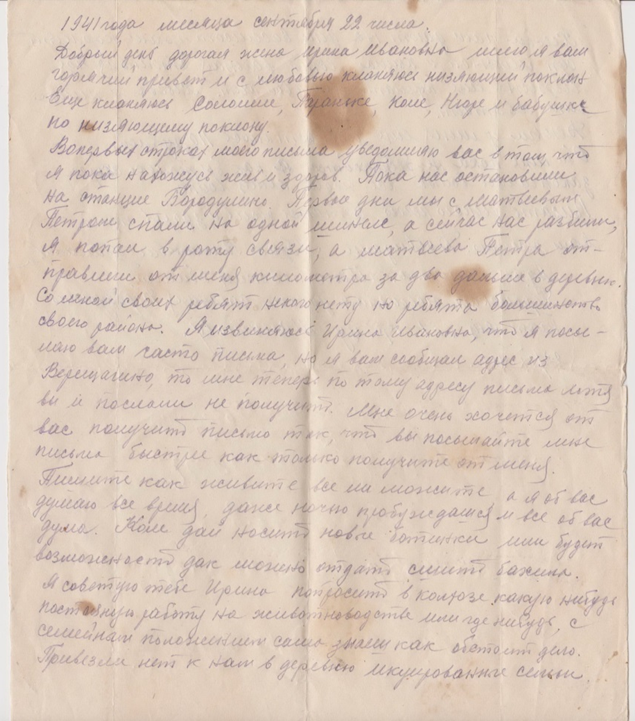 1941 года месяца сентебря 22 числа.
Добрый день дорогая жена Ирина Ивановна шлю я вам
горячий привет и с любовью кланяюсь низляющий поклон
Еще кланяюсь Соломие, Параньке, Коле, Нюре и бабушке
по низляющему поклону.
Вопервых строках моего письма уведомляю вас в том, что
я пока нахожусь жив и здоров. Пока нас остановили
на станцие Бородулино. Первые дни мы с Матвеевым
Петром спали на одной шинеле, а сейчас нас разбили,
я попал в роту связи, а Матвеева Петра от-
правили от меня километра за два дальше в деревню.
Со мной своих ребят некого нету но ребята большинство
своего района. Я извиняюсь Ирина Ивановна, что я посы-
лаю вам часто письма, но я вам сообщал адрес из
Верещагино, то мне теперь по тому адресу письма хотя
вы и послали не получить. Мне очень хочется от
вас получить письмо так, что вы посылайте мне
письма быстрее как только получите от меня.
Пишите как живите все ли можите а я об вас
думаю все время, даже ночью пробуждаюся и все об вас
дума. Коле дай носить новые ботинки или будет
возможность дак можно отдать сшить бахилы.
Я советую тебе Ирина попросить в колхозе какую нибудь
постоянную работу на животноводстве или где нибудь, с
семейным положением сама знаеш как обстоит дело.
Привезли нет к нам в деревню икуированные семьи.